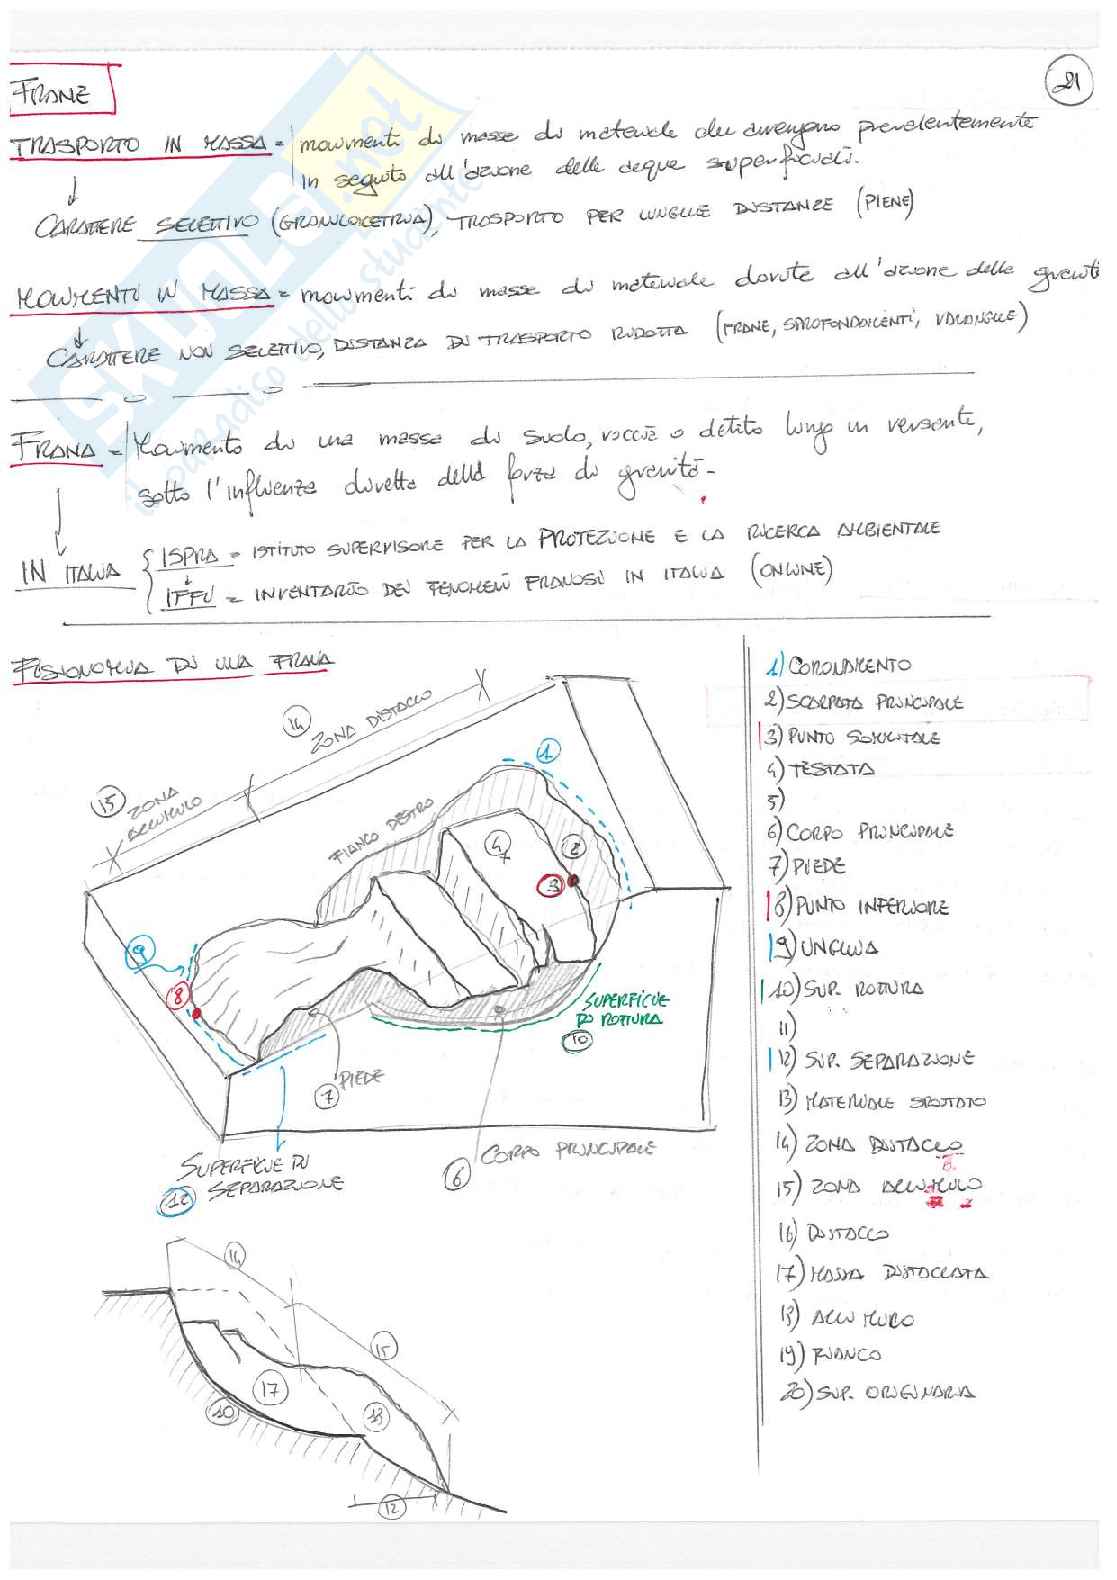 21
FRANE
TRASPORTO IN MASSA = movimenti di masse di materiale che avvengono prevalentemente
in seguito all'azione delle acque superficiali.
CARATTERE SELETTIVO (GRANULOMETRIA), TRASPORTO PER LUNGHE DISTANZE (PIENE)
MOVIMENTI IN MASSA = movimenti di masse di materiale dovute all'azione della gravità
CARATTERE NON SELETTIVO, DISTANZA DI TRASPORTO RIDOTTA (FRANE, SPROFONDAMENTI, VALANGHE)
FRANA = Movimento di una massa di suolo, roccia o detrito lungo un versante,
sotto l'influenza diretta della forza di gravità -
IN ITALIA { ISPRA = ISTITUTO SUPERVISORE PER LA PROTEZIONE E LA RICERCA AMBIENTALE
IFFI = INVENTARIO DEI FENOMENI FRANOSI IN ITALIA (ONLINE)
FISIONOMIA DI UNA FRANA
14 ZONA DISTACCO
15 ZONA ACCUMULO
FIANCO DESTRO
1
4
2
3
9
8
SUPERFICIE
DI ROTTURA
10
7 PIEDE
6 CORPO PRINCIPALE
SUPERFICIE DI
SEPARAZIONE
12
1) CORONAMENTO
2) SCARPATA PRINCIPALE
3) PUNTO SOMMITALE
4) TESTATA
5)
6) CORPO PRINCIPALE
7) PIEDE
8) PUNTO INFERIORE
9) UNGHIA
10) SUP. ROTTURA
11)
12) SUP. SEPARAZIONE
13) MATERIALE SPOSTATO
14) ZONA DISTACCO
15) ZONA ACCUMULO
16) DISTACCO
17) MASSA DISTACCATA
18) ACCUMULO
19) FIANCO
20) SUP. ORIGINARIA
14
15
17
18
10
12
SKUOLA.not
il paradiso dello studente